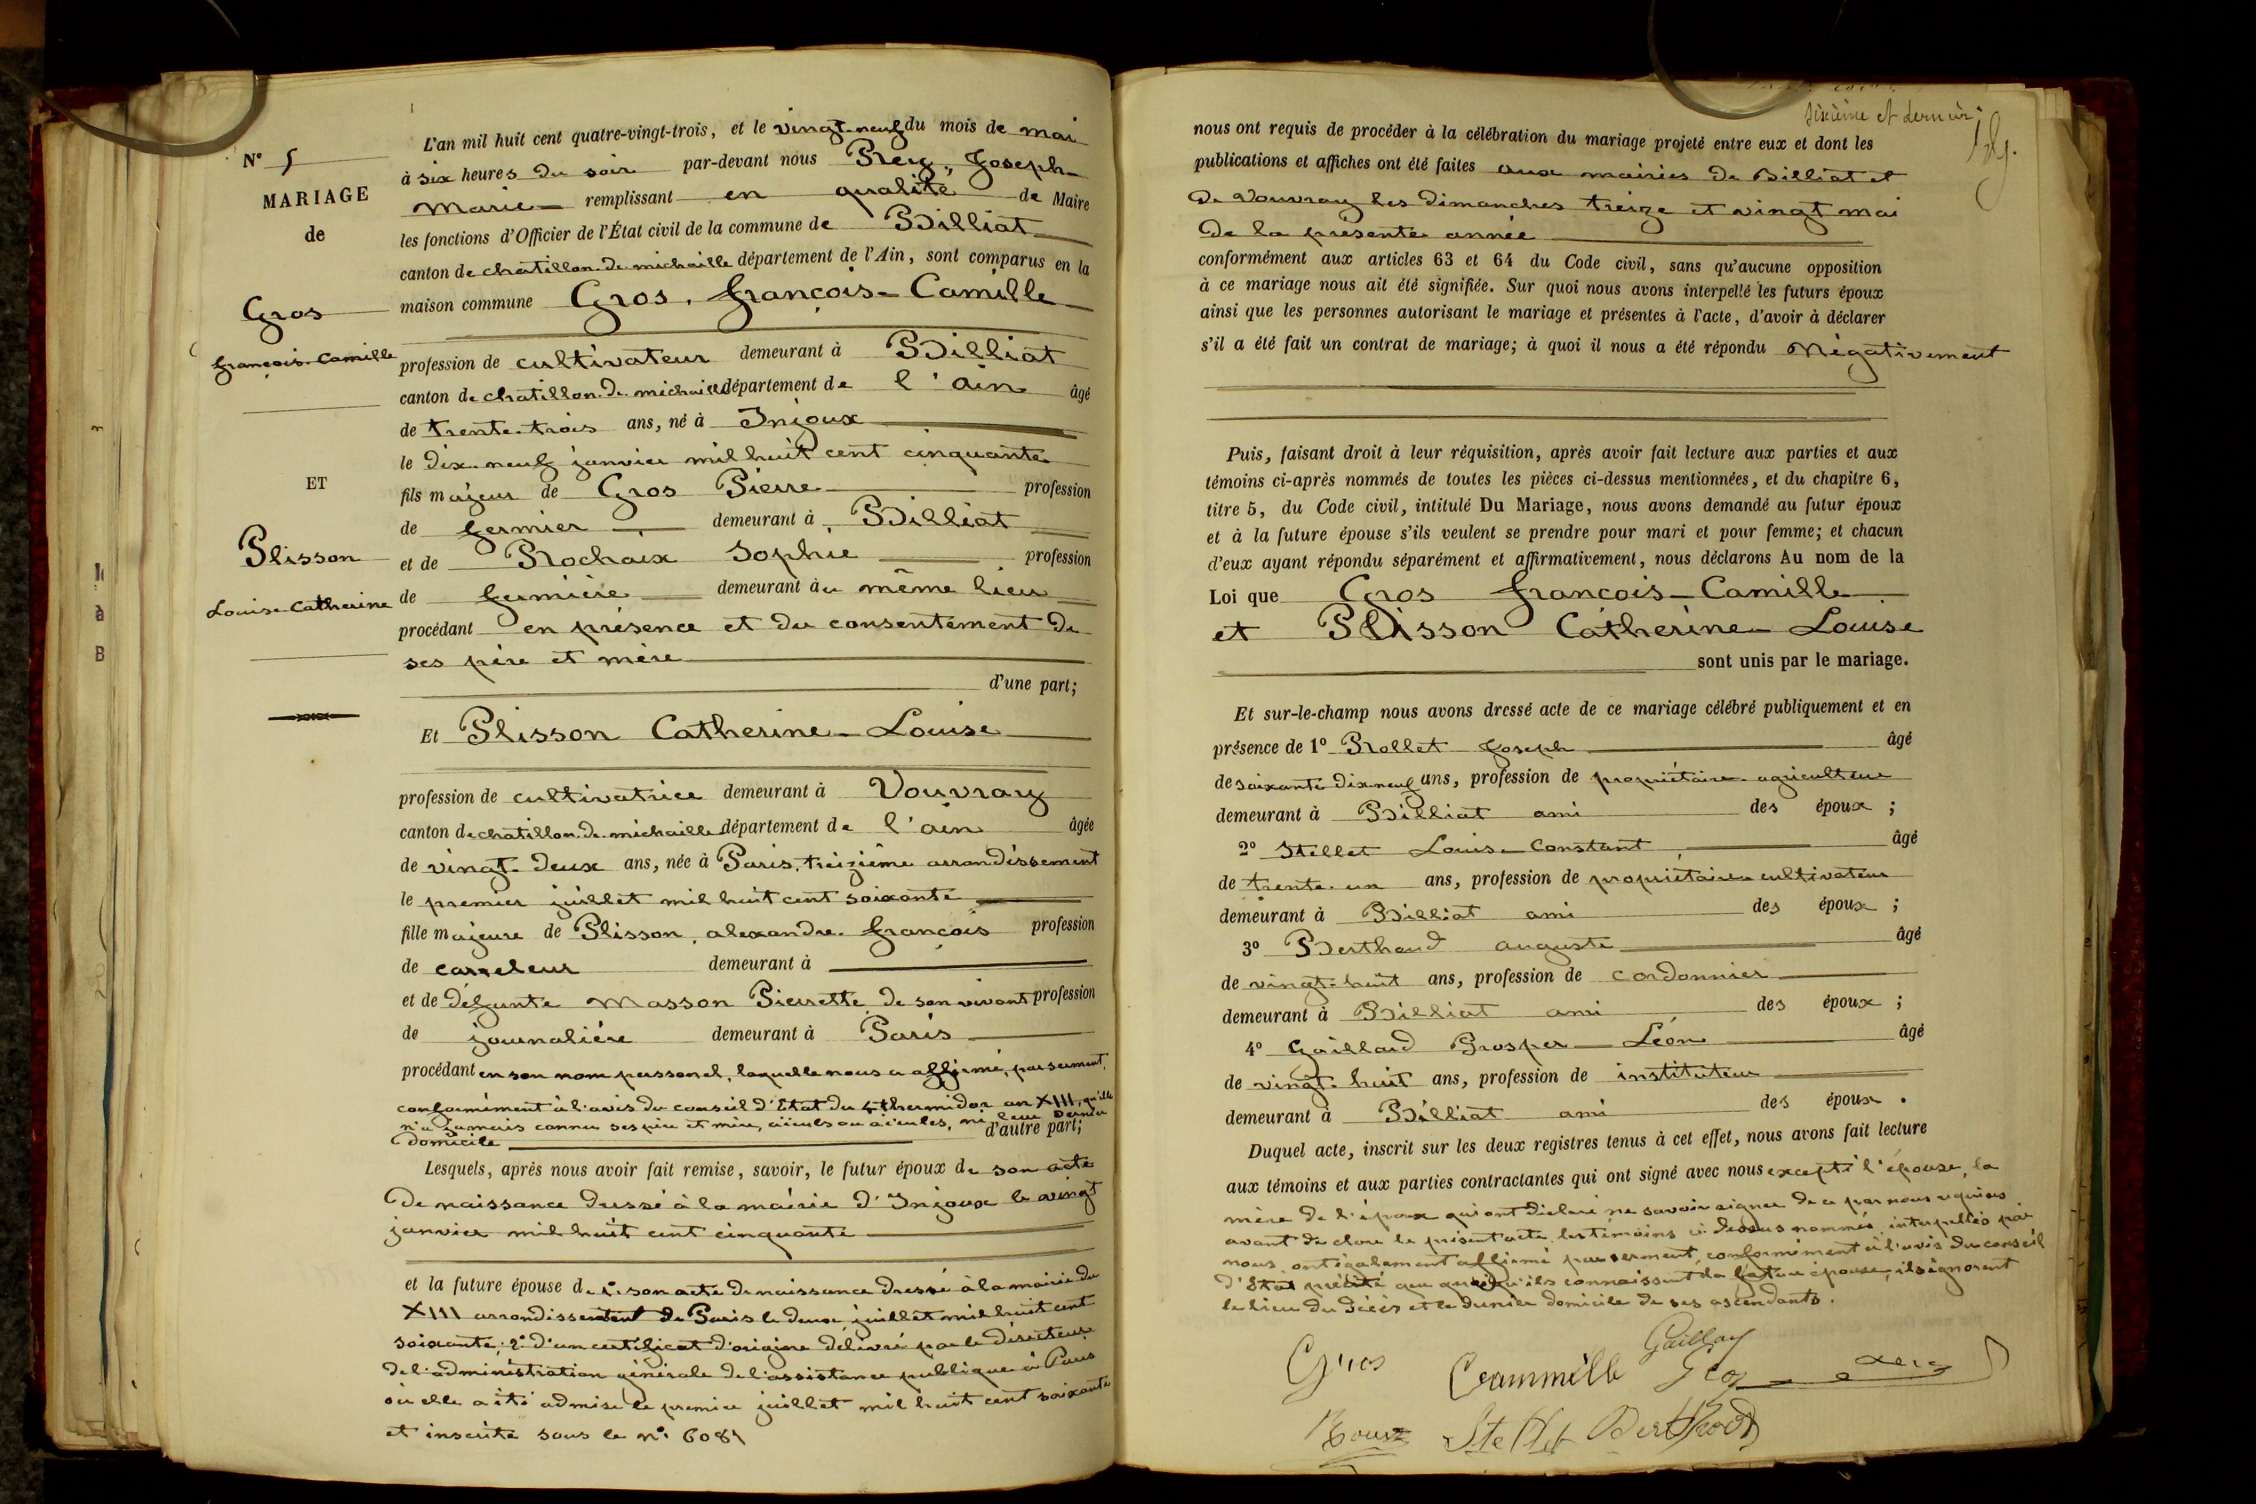 N° 5
MARIAGE
de
Gros
françois-Camille
ET
Plisson
Louise Catherine
L'an mil huit cent quatre-vingt-trois, et le vingt-neuf du mois de mai
à six heures du soir par-devant nous Rey, Joseph-
Marie remplissant en qualité de Maire
les fonctions d'Officier de l'État civil de la commune de Billiat
canton de chatillon-de-michaille département de l'Ain, sont comparus en la
maison commune Gros, françois-Camille
profession de cultivateur demeurant à Billiat
canton de chatillon-de-michaille département de l'ain âgé
de trente-trois ans, né à Injoux
le dix-neuf janvier mil huit cent cinquante
fils majeur de Gros Pierre profession
de fermier demeurant à Billiat
et de Rochaix Sophie profession
de fermière demeurant au même lieu
procédant en présence et du consentement de
ses père et mère
d'une part;
Et Plisson Catherine-Louise
profession de cultivatrice demeurant à Vouvray
canton de chatillon-de-michaille département de l'ain âgée
de vingt-deux ans, née à Paris, treizième arrondissement
le premier juillet mil huit cent soixante
fille majeure de Plisson, alexandre-françois profession
de carreleur demeurant à
et de défunte Masson Pierrette de son vivant profession
de journalière demeurant à Paris
procédant en son nom personnel, laquelle nous a affirmé, par serment,
conformément à l'avis du conseil d'Etat du 4 thermidor an XIII, qu'elle
n'a jamais connu ses père et mère, aïeuls ou aïeules, ni leur dernier
domicile d'autre part;
Lesquels, après nous avoir fait remise, savoir, le futur époux de son acte
de naissance dressé à la mairie d'Injoux le vingt
janvier mil huit cent cinquante
et la future épouse de 1° son acte de naissance dressé à la mairie du
XIII arrondissement de Paris le deux juillet mil huit cent
soixante; 2° d'un certificat d'origine délivré par le directeur
de l'administration générale de l'assistance publique à Paris
où elle a été admise le premier juillet mil huit cent soixante
et inscrite sous le n°
Sixième et dernier
nous ont requis de procéder à la célébration du mariage projeté entre eux et dont les
publications et affiches ont été faites aux mairies de Billiat et
de Vouvray les dimanches treize et vingt mai
de la présente année
conformément aux articles 63 et 64 du Code civil, sans qu'aucune opposition
à ce mariage nous ait été signifiée. Sur quoi nous avons interpellé les futurs époux
ainsi que les personnes autorisant le mariage et présentes à l'acte, d'avoir à déclarer
s'il a été fait un contrat de mariage; à quoi il nous a été répondu Négativement
Puis, faisant droit à leur réquisition, après avoir fait lecture aux parties et aux
témoins ci-après nommés de toutes les pièces ci-dessus mentionnées, et du chapitre 6,
titre 5, du Code civil, intitulé Du Mariage, nous avons demandé au futur époux
et à la future épouse s'ils veulent se prendre pour mari et pour femme; et chacun
d'eux ayant répondu séparément et affirmativement, nous déclarons Au nom de la
Loi que Gros françois-Camille
et Plisson Catherine-Louise
sont unis par le mariage.
Et sur-le-champ nous avons dressé acte de ce mariage célébré publiquement et en
présence de 1° Rollet Joseph âgé
de soixante dix neuf ans, profession de propriétaire-agriculteur
demeurant à Billiat ami des époux ;
2° Stellet Louis-Constant âgé
de trente-un ans, profession de propriétaire-cultivateur
demeurant à Billiat ami des époux ;
3° Berthoud auguste âgé
de vingt-huit ans, profession de cordonnier
demeurant à Billiat ami des époux ;
4° Gaillard Prosper-Léon âgé
de vingt-huit ans, profession de instituteur
demeurant à Billiat ami des époux .
Duquel acte, inscrit sur les deux registres tenus à cet effet, nous avons fait lecture
aux témoins et aux parties contractantes qui ont signé avec nous excepté l'épouse, la
mère de l'époux qui ont déclaré ne savoir signer de ce par nous requises
avant de clore le présent acte, les témoins ci-dessus nommés, interpellés par
nous, ont également affirmé par serment, conformément à l'avis du conseil
d'Etat précité que quoiqu'ils connaissent la future épouse, ils ignorent
le lieu du décès et le dernier domicile de ses ascendants.
Gros Cammille Gaillard
Stellet Berthoud